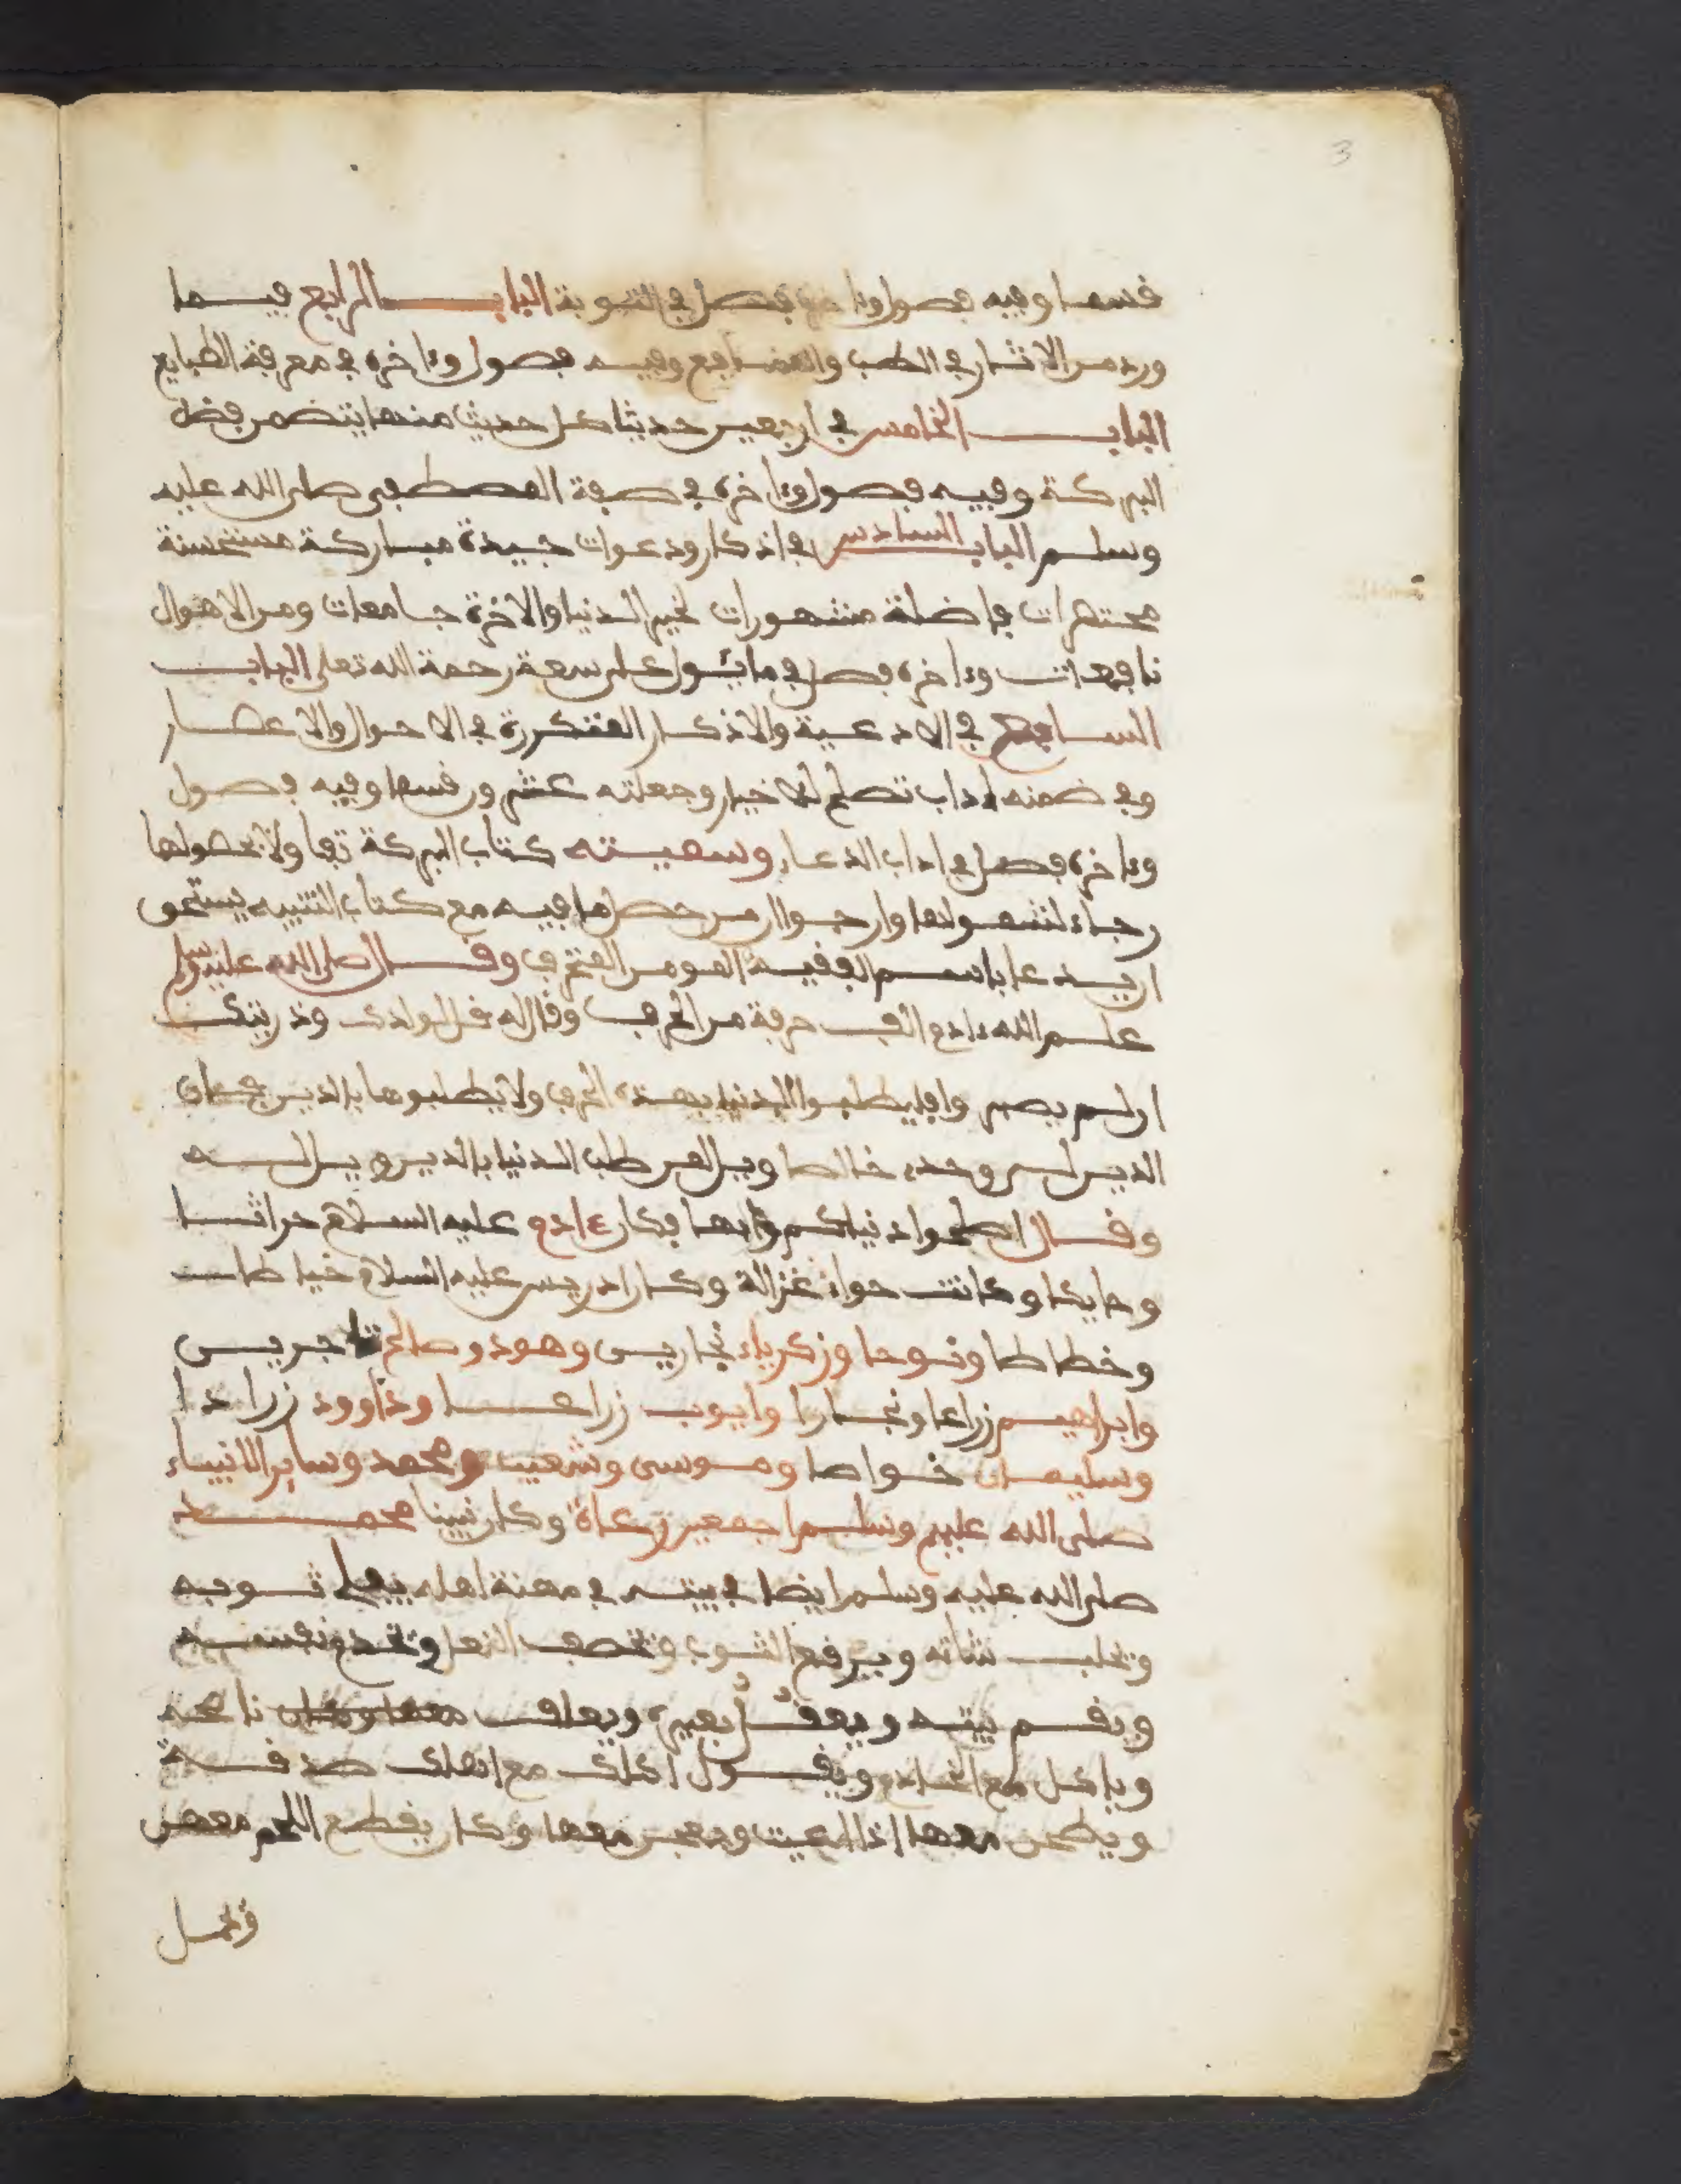 3
قسما وفيه فصول وءاخره فصل في التوبة الباب الرابع فيما
ورد من الاثار في الطب والمنافع وفيه فصول وءاخره في معرفة الطبايع
الباب الخامس في اربعين حديثا كل حديث منها يتضمن فضل
البركة وفيه فصول وءاخره في صفة المصطفى صلى الله عليه
وسلم الباب السادس في اذكار ودعوات جيدة مباركة مستحسنة
مختصرات فاضلة مشهورات لخير الدنيا والاخرة جامعات ومن الاهوال
نافعات وءاخره فصل في ما يئول على سعة رحمة الله تعلى الباب
السابع في الادعية والاذكار المتكررة في الاحوال والاعصار
وفي ضمنه ءاداب تصلح للاخيار وجعلته عشرون قسما وفيه فصول
وءاخره فصل في اداب الدعاء وسميته كتاب البركة تفاولا بحصولها
رجاء لشمولها وارجوا ان من حصل ما فيه مع كتاب التنبيه يستحق
ان يدعا باسم الفقيه المومن المحترف وقال صلى الله عليه وسلم
علم الله ءادم الف حرفة من الحرف وقال له قل لولدك وذريتك
ان لم يصبروا فليطلبوا الدنيا بهذه الحرف ولا يطلبوها بالدين فان
الدين لي وحدي خالصا ويل لمن طلب الدنيا بالدين ويل له
وقال اصلحوا دنياكم وكان ءادم عليه السلام حراثا
وحايكا وكانت حواء غزالة وكان ادريس عليه السلام خياطا
وخطاطا ونوحا وزكرياء نجارين وهود وصالح تاجرين
وابراهيم زراعا ونجارا وايوب زراعا وداوود زرادا
وسليمان خواصا وموسى وشعيب ومحمد وساير الانبياء
صلى الله عليهم وسلم اجمعين رعاة وكان نبينا محمد
صلى الله عليه وسلم ايضا في بيته في مهنة اهله يفلي ثوبه
ويحلب شاته ويرقع الثوب ويخصف النعل ويخدم نفسه
ويقم بيته ويعقل بعيره ويعلف ناضحه
وياكل مع الخادم ويقول اكلك مع اهلك صدقة
ويطحن معها اذا اعيت ويعجن معها وكان يقطع اللحم معهن
ويحمل